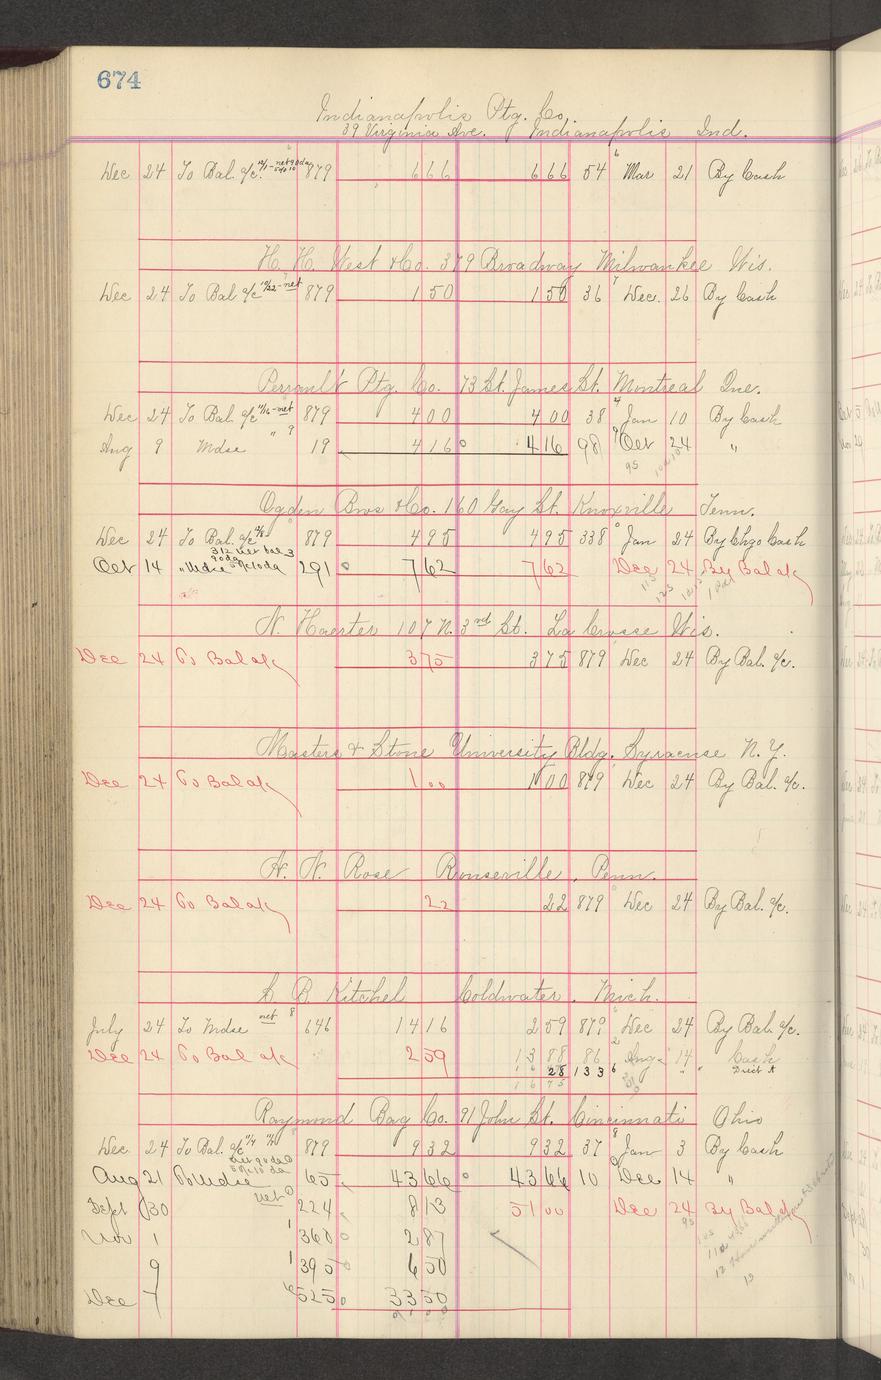 674
Indianapolis Ptg. Co.
39 Virginia Ave. Indianapolis Ind.
Dec 24 To Bal. a/c 879 666 666 54 Mar 21 By Cash
H. H. West & Co. 379 Broadway Milwaukee Wis.
Dec 24 To Bal a/c 10/22 - net 879 150 150 36 Dec. 26 By Cash
Perrault Ptg. Co. 73 St. James St. Montreal Que.
Dec 24 To Bal. a/c 11/16 - net 879 400 400 38 Jan 10 By Cash
Aug 9 Mdse " 9 19 416 416 98 Oct 24 "
95
Ogden Bros & Co. 160 Gay St. Knoxville Tenn.
Dec 24 To Bal. a/c 879 495 495 338 Jan 24 By Chgo Cash
Oct 14 " Mdse 90 da 5% 10 da 291 762 762 Dec 24 By Bal a/c
115 125
N. Haerter 107 N. 3rd St. La Crosse Wis.
Dec 24 To Bal a/c 375 375 879 Dec 24 By Bal. a/c.
Masters & Stone University Bldg. Syracuse N. Y.
Dec 24 To Bal a/c 1 00 1 00 879 Dec 24 By Bal. a/c.
N. N. Rose Rouseville, Penn.
Dec 24 To Bal a/c 22 22 879 Dec 24 By Bal. a/c.
C. B. Kitchel Coldwater, Mich.
July 24 To Mdse net 8 646 1416 259 879 Dec 24 By Bal. a/c.
Dec 24 To Bal a/c 259 1388 86 Aug 14 Cash
28 133 6 " "
1675
Raymond Bag Co. 91 John St. Cincinnati Ohio
Dec 24 To Bal. a/c 879 932 932 37 Jan 3 By Cash
Aug 21 To Mdse net 90 da 5% 10 da 65 4366 4366 10 Dec 14 "
Sept 30 net 224 813 51 00 Dec 24 By Bal a/c
Nov 1 1 360 287
9 1 395 650
Dec 7 525 3350